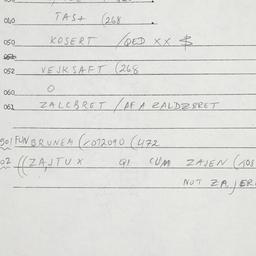 040 TAS+ (268
050 KOSERT /QED XX $
052 VEJKSAFT (268
060 O
061 ZALCBRET /AF A ZALDZBRET
501 FUN BRUNEM (2012090 (472
02 ((ZAJTUX 91 CUM ZAJEN (108
NOT ZAJER